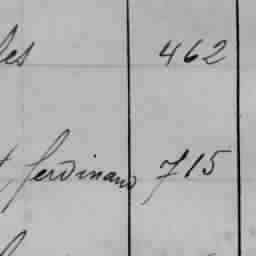 les 462
ferdinand 715